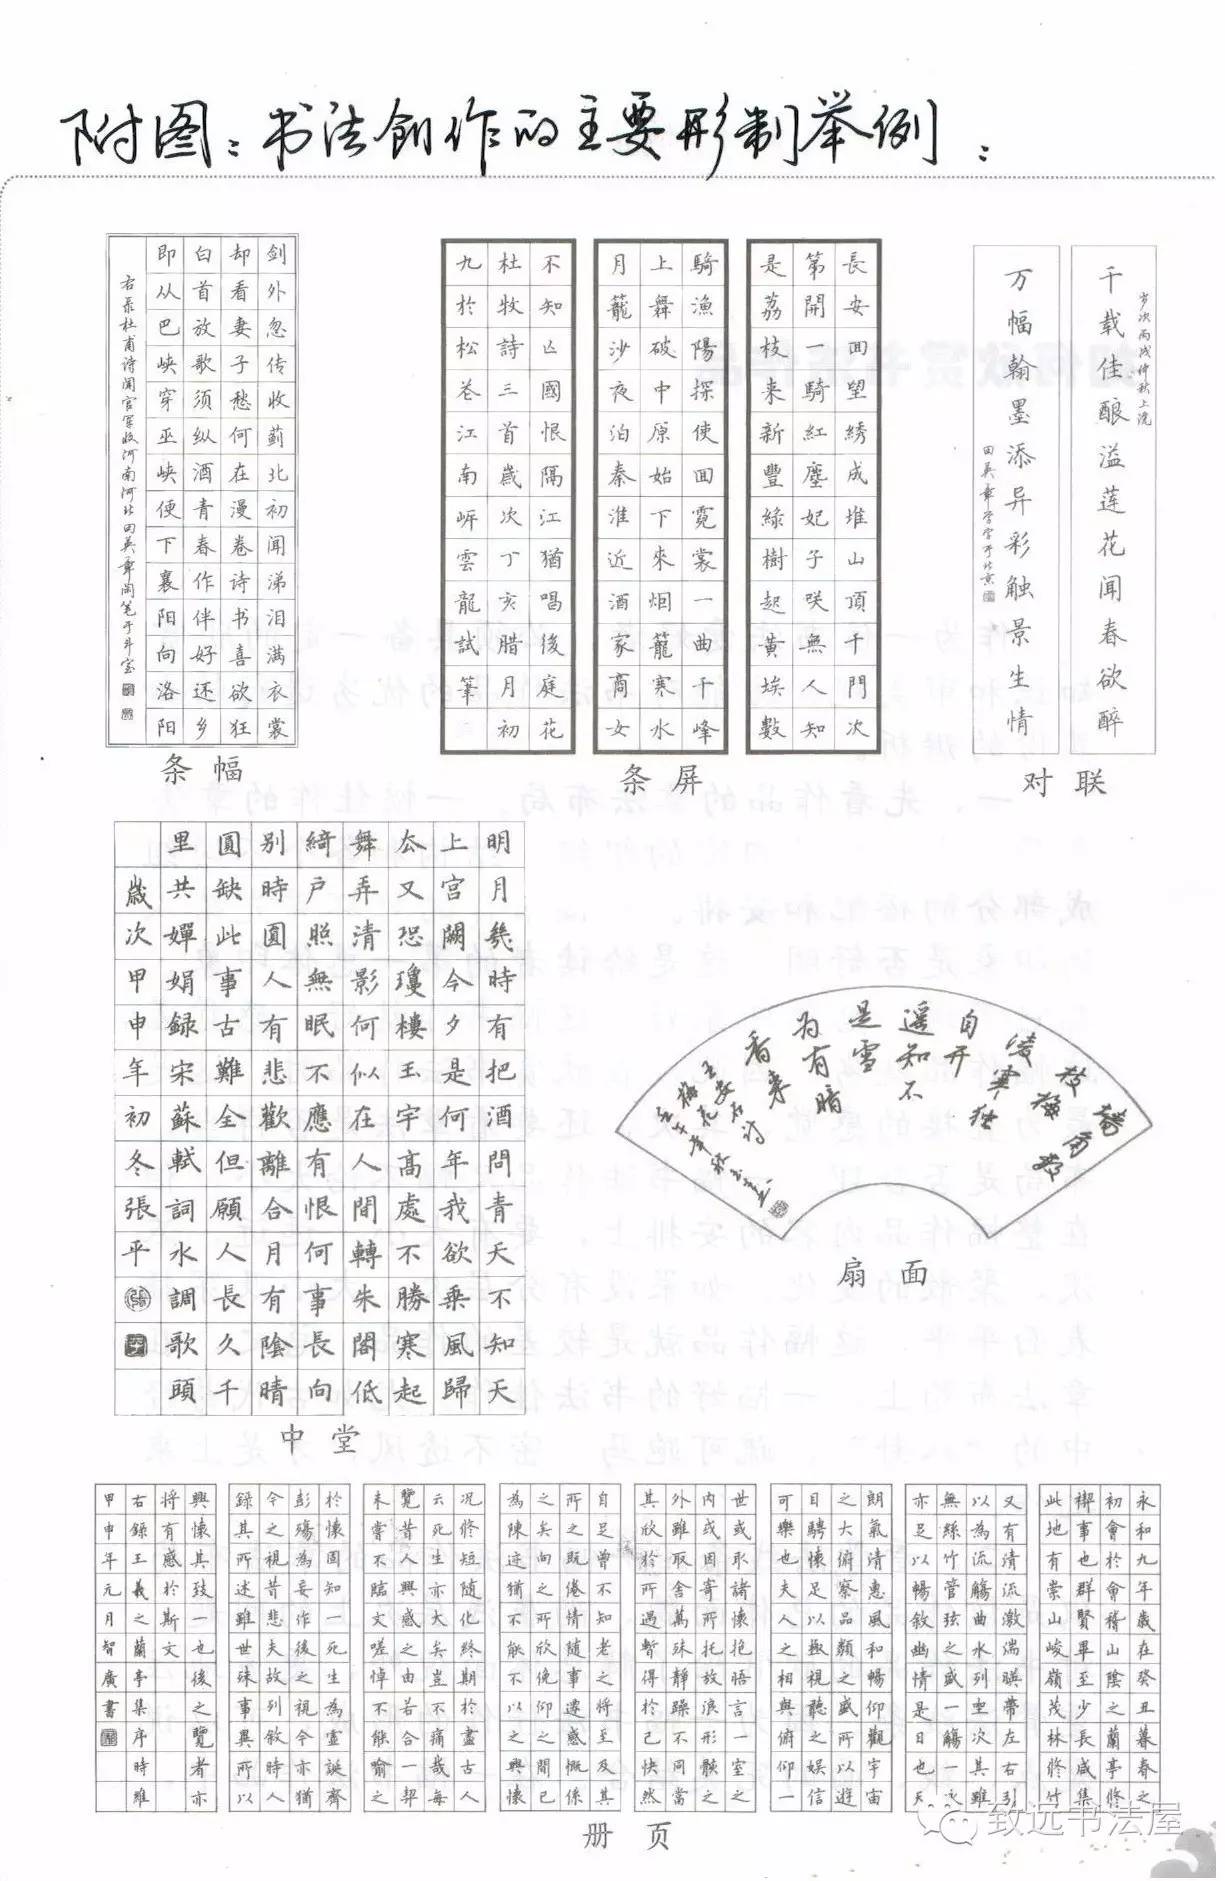 附图：书法創作的主要形制举例：
剑外忽传收蓟北初闻涕泪满衣裳
却看妻子愁何在漫卷诗书喜欲狂
白首放歌须纵酒青春作伴好还乡
即从巴峡穿巫峡便下襄阳向洛阳
右录杜甫诗闻官军收河南河北田英章
条幅
長安回望綉成堆山頂千門次
第開一騎紅塵妃子咲無人知
是荔枝来新豐綠樹起黃埃數
騎漁陽探使回霓裳一曲千峰
上舞破中原始下來烟籠寒水
月籠沙夜泊秦淮近酒家商女
不知亡國恨隔江猶唱後庭花
杜牧詩三首歲次丁亥腊月初
九於松苍江南岍雲龍試筆
条屏
岁次丙戌仲秋上浣
千载佳酿溢莲花闻春欲醉
万幅翰墨添异彩触景生情
田英章学字于北京
对联
明月幾時有把酒問青天不知天
上宮闕今夕是何年我欲乘風歸
去又恐瓊樓玉宇高處不勝寒起
舞弄清影何似在人間轉朱閣低
綺户照無眠不應有恨何事長向
别時圓人有悲歡離合月有陰晴
圓缺此事古難全但願人長久千
里共嬋娟録宋蘇軾詞水調歌頭
歲次甲申年初冬張平
中堂
墙角数
枝梅
凌寒独
自开
遥知不
是雪
为有暗
香来
王安石诗
梅花
扇面
永和九年歲在癸丑暮春之
初會於會稽山陰之蘭亭修
禊事也群賢畢至少長咸集
此地有崇山峻嶺茂林修竹
又有清流激湍暎帶左右引
以為流觴曲水列坐次其雖
無絲竹管弦之盛一觴一詠
亦足以暢敘幽情是日也天
朗氣清惠風和暢仰觀宇宙
之大俯察品類之盛所以遊
目騁懷足以極視聽之娱信
可樂也夫人之相與俯仰一
世或取諸懷抱悟言一室之
内或因寄所托放浪形骸之
外雖取舍萬殊静躁不同當
其欣於所遇暫得於己快然
自足曾不知老之将至及其
所之既倦情隨事遷感概係
之矣向之所欣俛仰之間已
為陳迹猶不能不以之興懷
况修短随化終期於盡古人
云死生亦大矣豈不痛哉每
覽昔人興感之由若合一契
未嘗不臨文嗟悼不能喻之
於懷固知一死生為虚誕齊
彭殤為妄作後之視今亦猶
今之視昔悲夫故列敘時人
録其所述雖世殊事異所以
興懷其致一也後之覽者亦
将有感於斯文
右錄王羲之蘭亭集序時維
甲申年元月智廣書
册页
致远书法屋